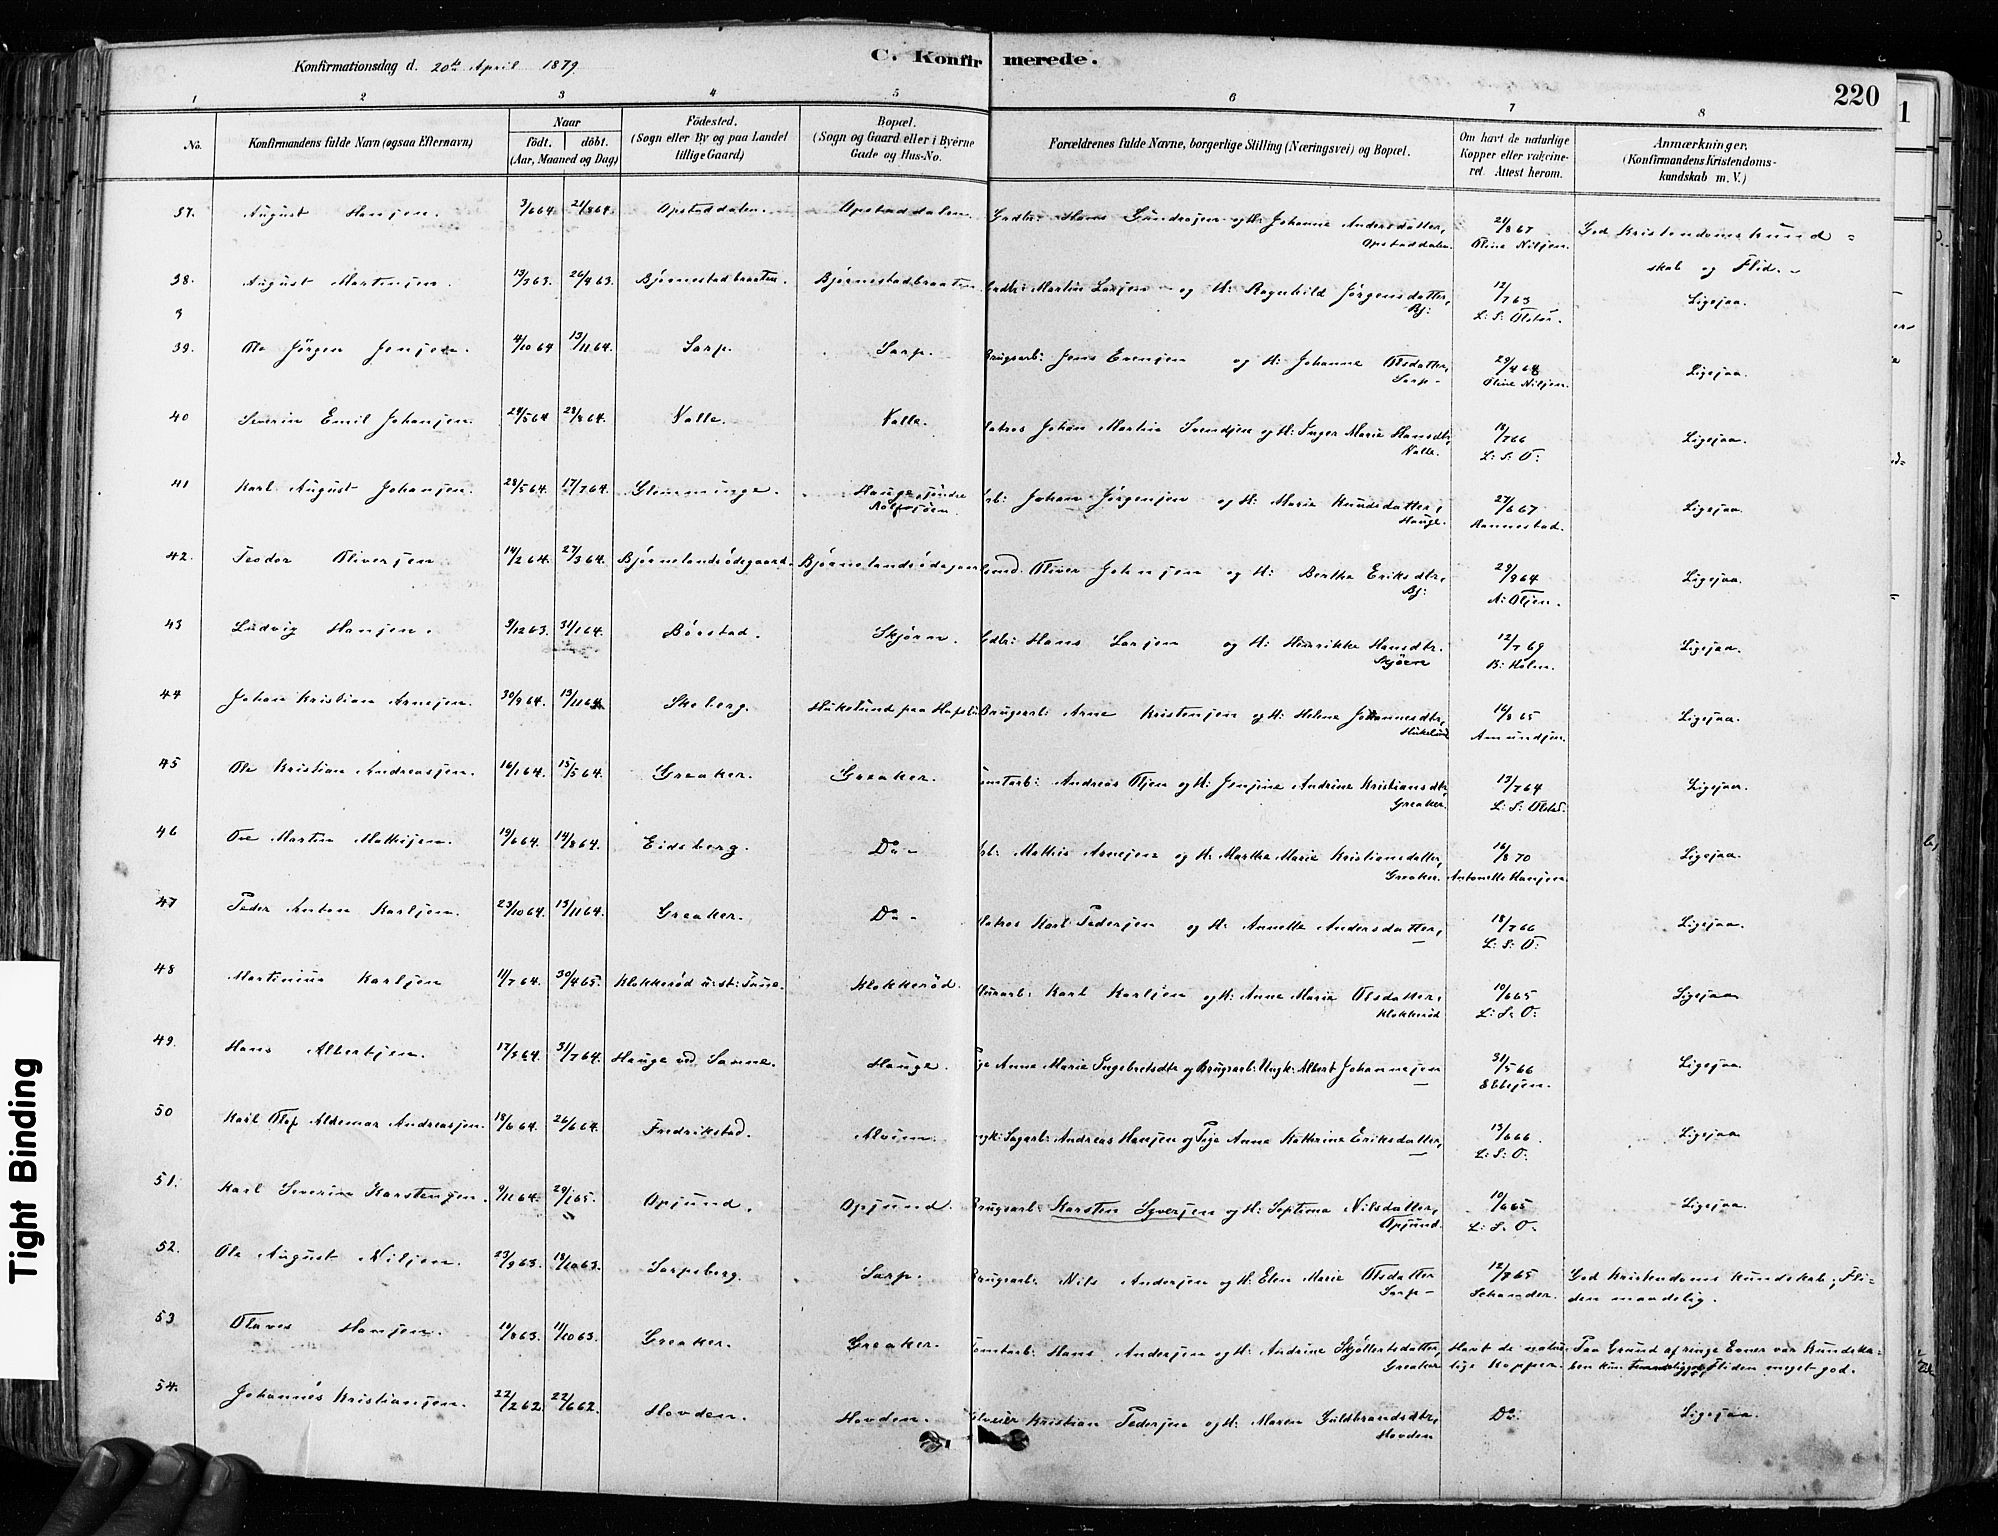 Konfirmationsdag d. 20de April 1879
C. Konfirmerede.
220
1 2 3 4 5 6 7 8
No. Konfirmandens fulde Navn (ogsaa Efternavn) Naar født. døbt. (Aar, Maaned og Dag) Födested. (Sogn eller By og paa Landet tillige Gaard) Bopæl. (Sogn og Gaard eller i Byerne Gade og Hus-No. Forældrenes fulde Navne, borgerlige Stilling (Næringsvei) og Bopæl. Om havt de naturlige Kopper eller vakcineret. Attest herom. Anmærkninger. (Konfirmandens Kristendomskundskab m. V.)
37. August Hansen. 3/6 64 21/8 64. Opstaddalen. Opstaddalen Hans Gundersen og H: Johanne Andersdatter, Opstaddalen 21/8 67 Oline Nilsen. God Kristendomskund=
skab og Flid.
38. August Martinsen. 13/3 63. 26/4 63. Bjørnestadbraaten. Bjørnestadbraaten Martin Larsen og H: Ragnhild Jørgensdatter, Bj: 12/7 63 L: S: Olstad. Ligesaa.
39. Ole Jörgen Jensen. 4/10 64 13/11 64. Sarp. Sarp. Brugsarb: Jens Evensen og H: Johanne Olsdatter, Sarp 29/4 68 Oline Nilsen. Ligesaa.
40 Severin Emil Johansen. 24/5 64 28/8 64. Valle. Valle. Matros Johan Martin Svendsen og H: Inger Marie Hansdtr, Valle. 18/7 66 L: S: O: Ligesaa.
41 Karl August Johansen. 28/5 64. 17/7 64. Glemminge. Hauge søndre Rolfsøen. Arb: Johan Jørgensen og H: Marie Knudsdatter, Hauge. 27/6 67 Rannestad. Ligesaa.
42. Teodor Oliversen 14/2 64. 27/3 64. Bjørnelandsødegaard. Bjørnelandsødegaard Oliver Johnsen og H: Berthe Eriksdtr, Bj: 29/9 64 A: Olsen. Ligesaa.
43 Ludvig Hansen. 9/12 63. 31/1 64. Børstad. Skjørn. Hans Larsen og H: Henrikke Hansdtr. Skjøren 12/7 69 B: Holm. Ligesaa.
44 Johan Kristian Arnesen. 30/9 64. 13/11 64 Skeberg. Hukelund paa Hafslund Brugsarb: Arne Kristensen og H: Helene Johannesdtr, Hukelund 16/8 65 Amundsen. Ligesaa.
45 Ole Kristian Andreassen. 16/1 64. 15/5 64. Greaker. Greaker. Tomtarb: Andreas Olsen og H: Jensine Andrine Kristiansdtr, Greaker. 13/7 64 L: S: Olstad. Ligesaa.
46 Ove Martin Mathisen. 19/6 64. 14/8 64. Eidsberg. Do- Arb: Mathis Arnesen og H: Marthe Marie Kristiansdatter, Greaker. 16/8 70 Antonette Hansen. Ligesaa.
47 Peder Anton Karlsen. 23/10 64. 13/11 64. Greaker. Do- Matros Karl Pedersen og H: Annette Andersdatter, 18/7 66 L: S: O: Ligesaa.
48 Martinius Karlsen 11/7 64. 30/4 65. Klokkerød u: st: Tune. Klokkerød. Murarb: Karl Karlsen og H: Anne Marie Olsdatter, Klokkerød 10/6 65 L: S: O: Ligesaa
49. Hans Albertsen. 17/3 64. 31/7 64. Hauge ved Sanne. Hauge. Pige Anne Marie Ingebretsdtr og Brugsarb: Ungk: Albert Johannesen 31/5 66 Ebbesen. Ligesaa
50 Karl Olof Aldemar Andreassen. 18/6 64. 26/6 64. Fredrikstad. Alvim. Ungk: Sagarb: Andreas Hansen og Pige Anne Kathrine Eriksdatter, 13/6 66 L: S: O: Ligesaa
51. Karl Severin Karstensen. 9/11 64. 29/1 65. Opsund. Opsund. Brugsarb: Karsten Syversen og H: Septima Nilsdatter, Opsund. 10/6 65 L: S: O. Ligesaa.
52. Ole August Nilsen. 23/9 63. 18/10 63. Sarpsborg. Sarp. Brugsarb: Nils Andersen og H: Elen Marie Olsdatter Sarp 12/7 65 Schander. God Kristendomskundskab; Fli-
den maadelig.
53 Olaves Hansen. 19/8 63. 11/10 63. Greaker. Greaker. Tomtarb: Hans Andersen og H: Andrine Skjøllertsdatter, Greaker Havt de natur-
lige Kopper. Paa Grund af ringe Evner var Kundska-
ben kun Fliden meget god.
54. Johannes Kristiansen. 22/2 62. 22/6 62. Hovden. Hovden. Selveier Kristian Pedersen og H: Maren Guldbrandsdtr, Hovden Do: Ligesaa.
Tight Binding